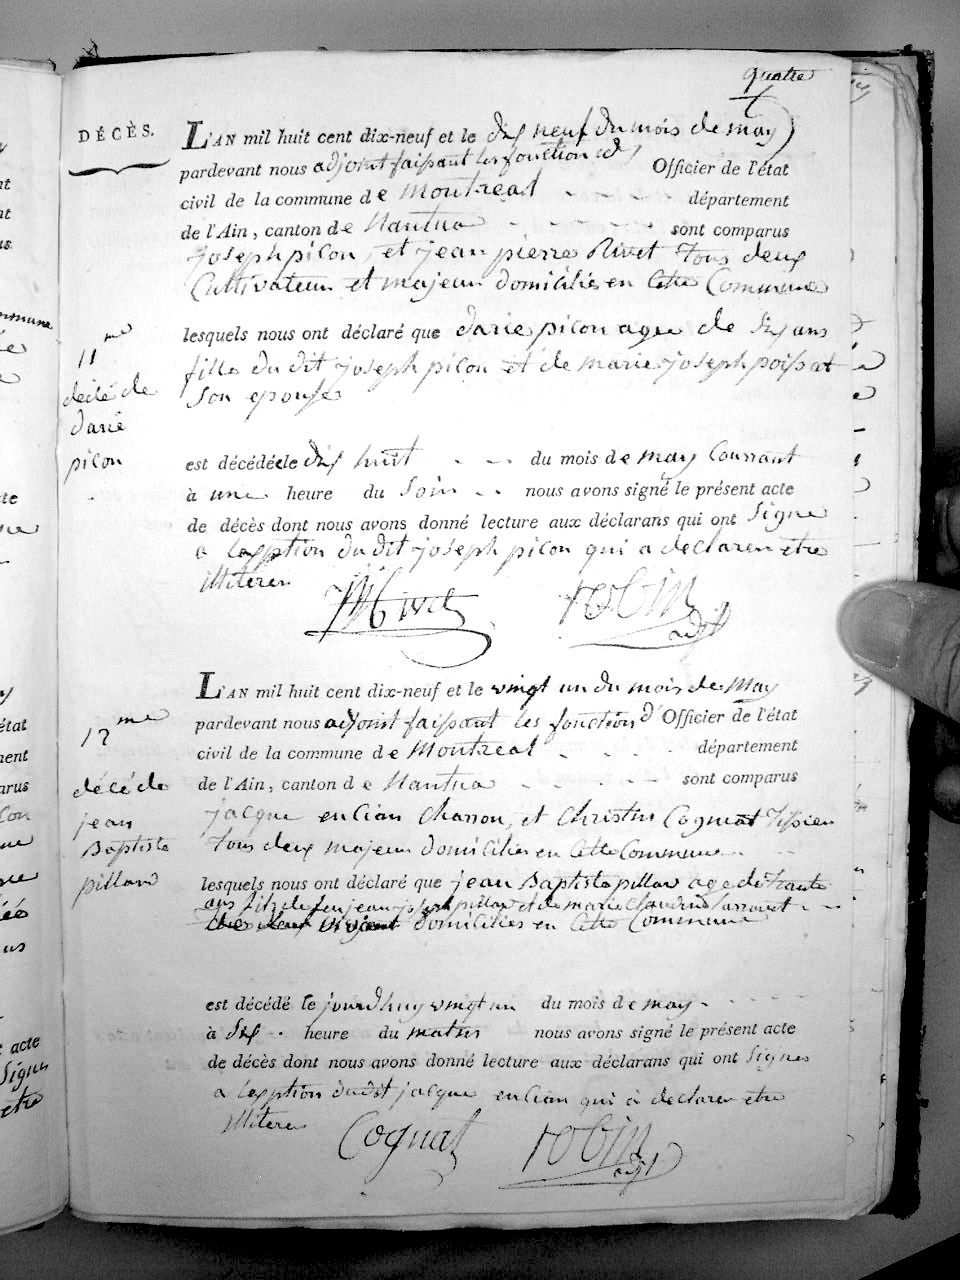 quatre
DÉCÈS.
L'AN mil huit cent dix-neuf et le dix neuf du mois de may
pardevant nous adjoint faisant les fonction d' Officier de l'état
civil de la commune de Montreal département
de l'Ain, canton de Nantua sont comparus
joseph picon, et jean pierre Rivet tous deux
Cultivateur et majeur domiciliés en Cette Commune
lesquels nous ont déclaré que darie picon agee de dix ans
fille du dit joseph picon et de marie joseph poissat
Son epouse
11me
décé de
darie
picon
est décédée le dix huit du mois de may Courrant
à une heure du Soir nous avons signé le présent acte
de décès dont nous avons donné lecture aux déclarans qui ont Signe
a lexption du dit joseph picon qui a declarer etre
illiterer
Rivet robin adjt
L'AN mil huit cent dix-neuf et le vingt un du mois de May
pardevant nous adjoint faisant les fonction d' Officier de l'état
civil de la commune de Montreal département
de l'Ain, canton de Nantua sont comparus
jacque encian Charron, et Christin Cognat Tissier
tous deux majeur domiciliés en Cette Commune
lesquels nous ont déclaré que jean Baptiste pillard age de trante
ans fils de feu jean joseph pillard et de marie Claudine
domiciliés en Cette Commune
12me
décé de
jean
Baptiste
pillard
est décédé le jourdhuy vingt un du mois de may
à Six heure du matin nous avons signé le présent acte
de décès dont nous avons donné lecture aux déclarans qui ont Signes
a lexption dudit jacque encian qui a declarer etre
illiterer
Cognat robin adjt